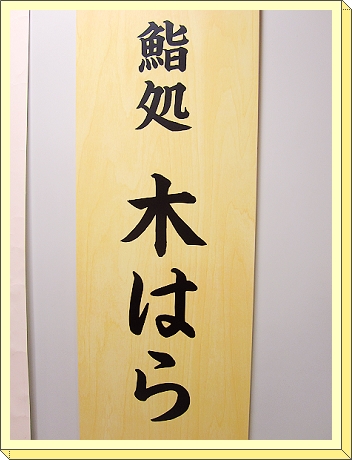 鮨処 木はら